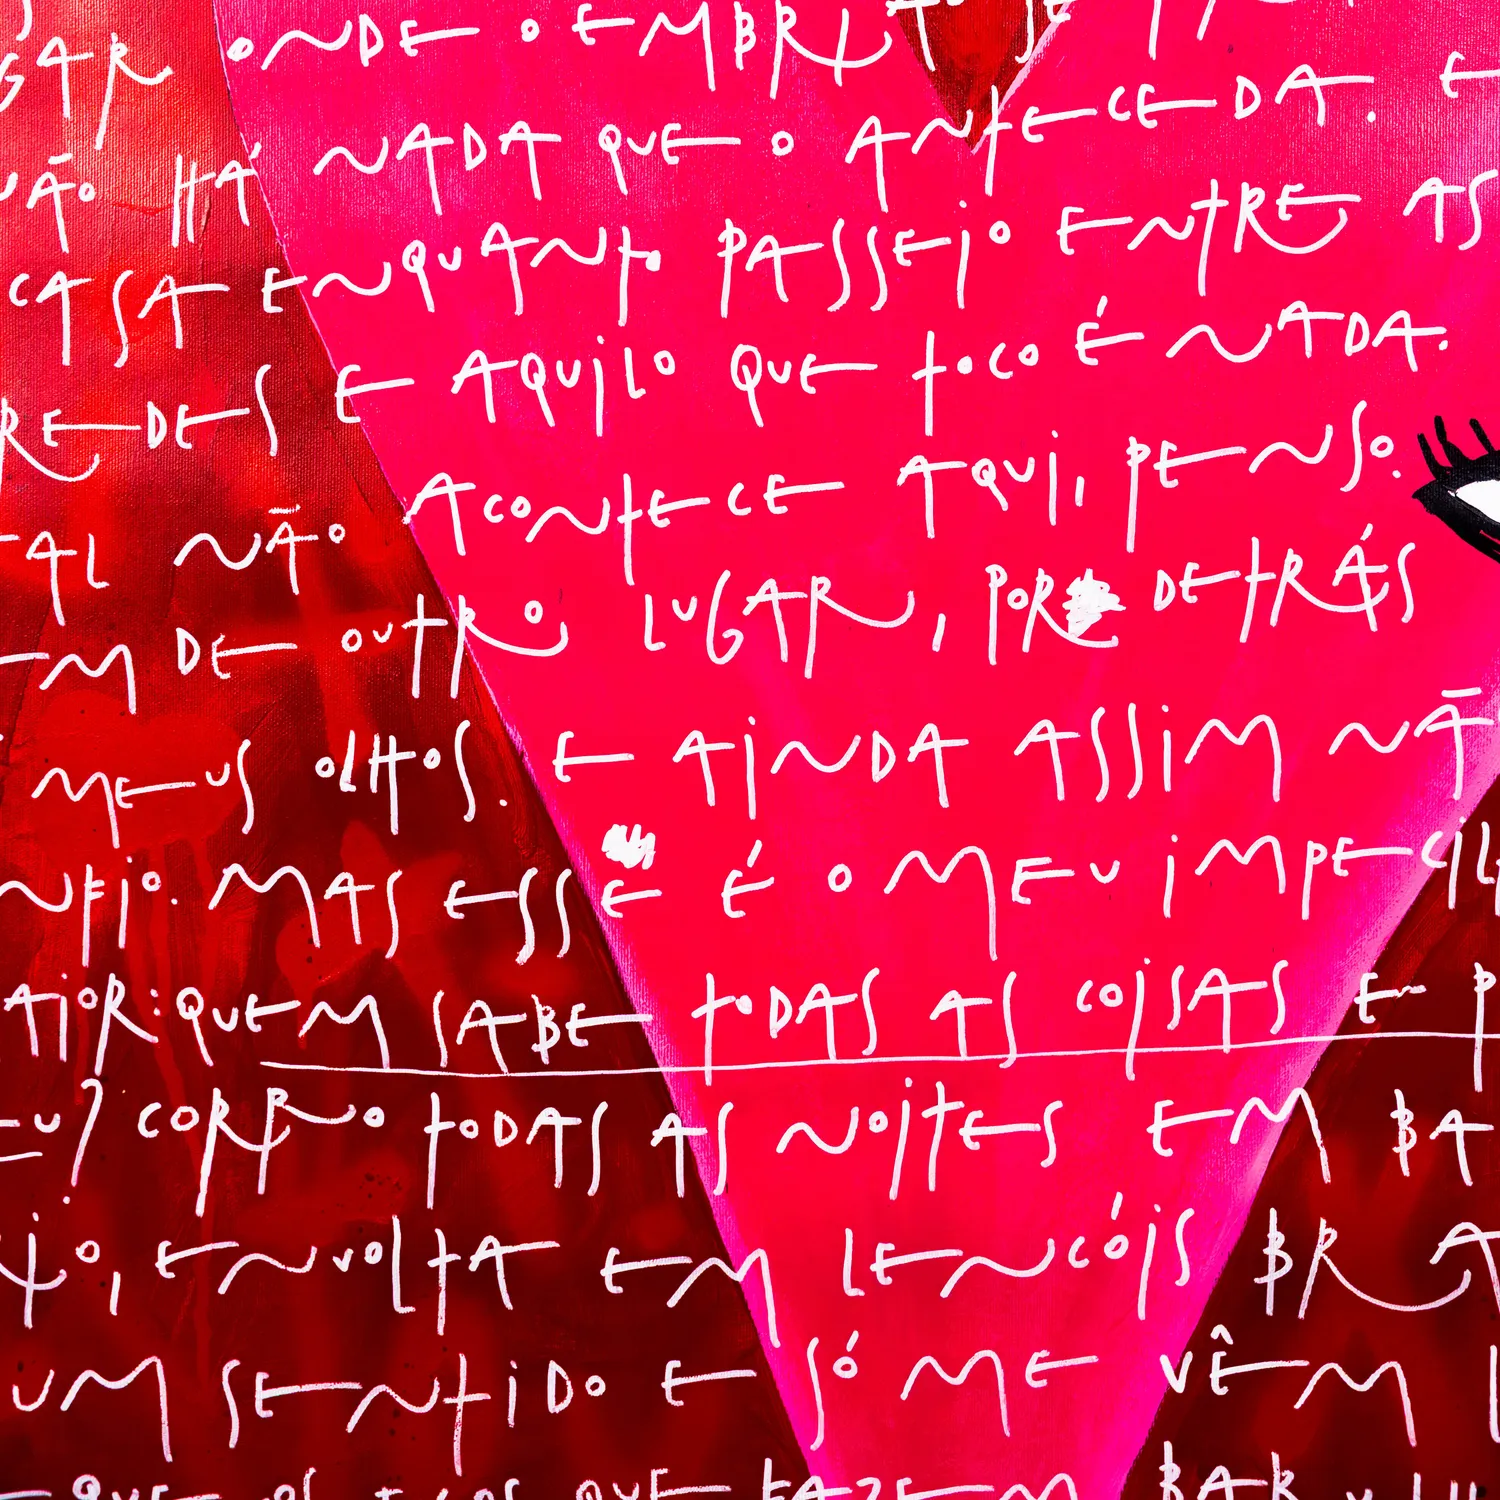 GAR ONDE O EMBRI
NÃO HÁ NADA QUE O ANTECEDA. E
CASA ENQUANTO PASSEIO ENTRE AS
REDES E AQUILO QUE TOCO É NADA.
TAL NÃO ACONTECE AQUI, PENSO.
EM DE OUTRO LUGAR, POR DETRÁS
MEUS OLHOS. E AINDA ASSIM NÃ
NFIO. MAS ESSE É O MEU IMPECIL
AIOR: QUEM SABE TODAS AS COISAS E P
EU? CORRO TODAS AS NOITES EM BA
IO, ENVOLTA EM LENCÓIS BRA
UM SENTIDO E SÓ ME VÊM
QUE FAZEM